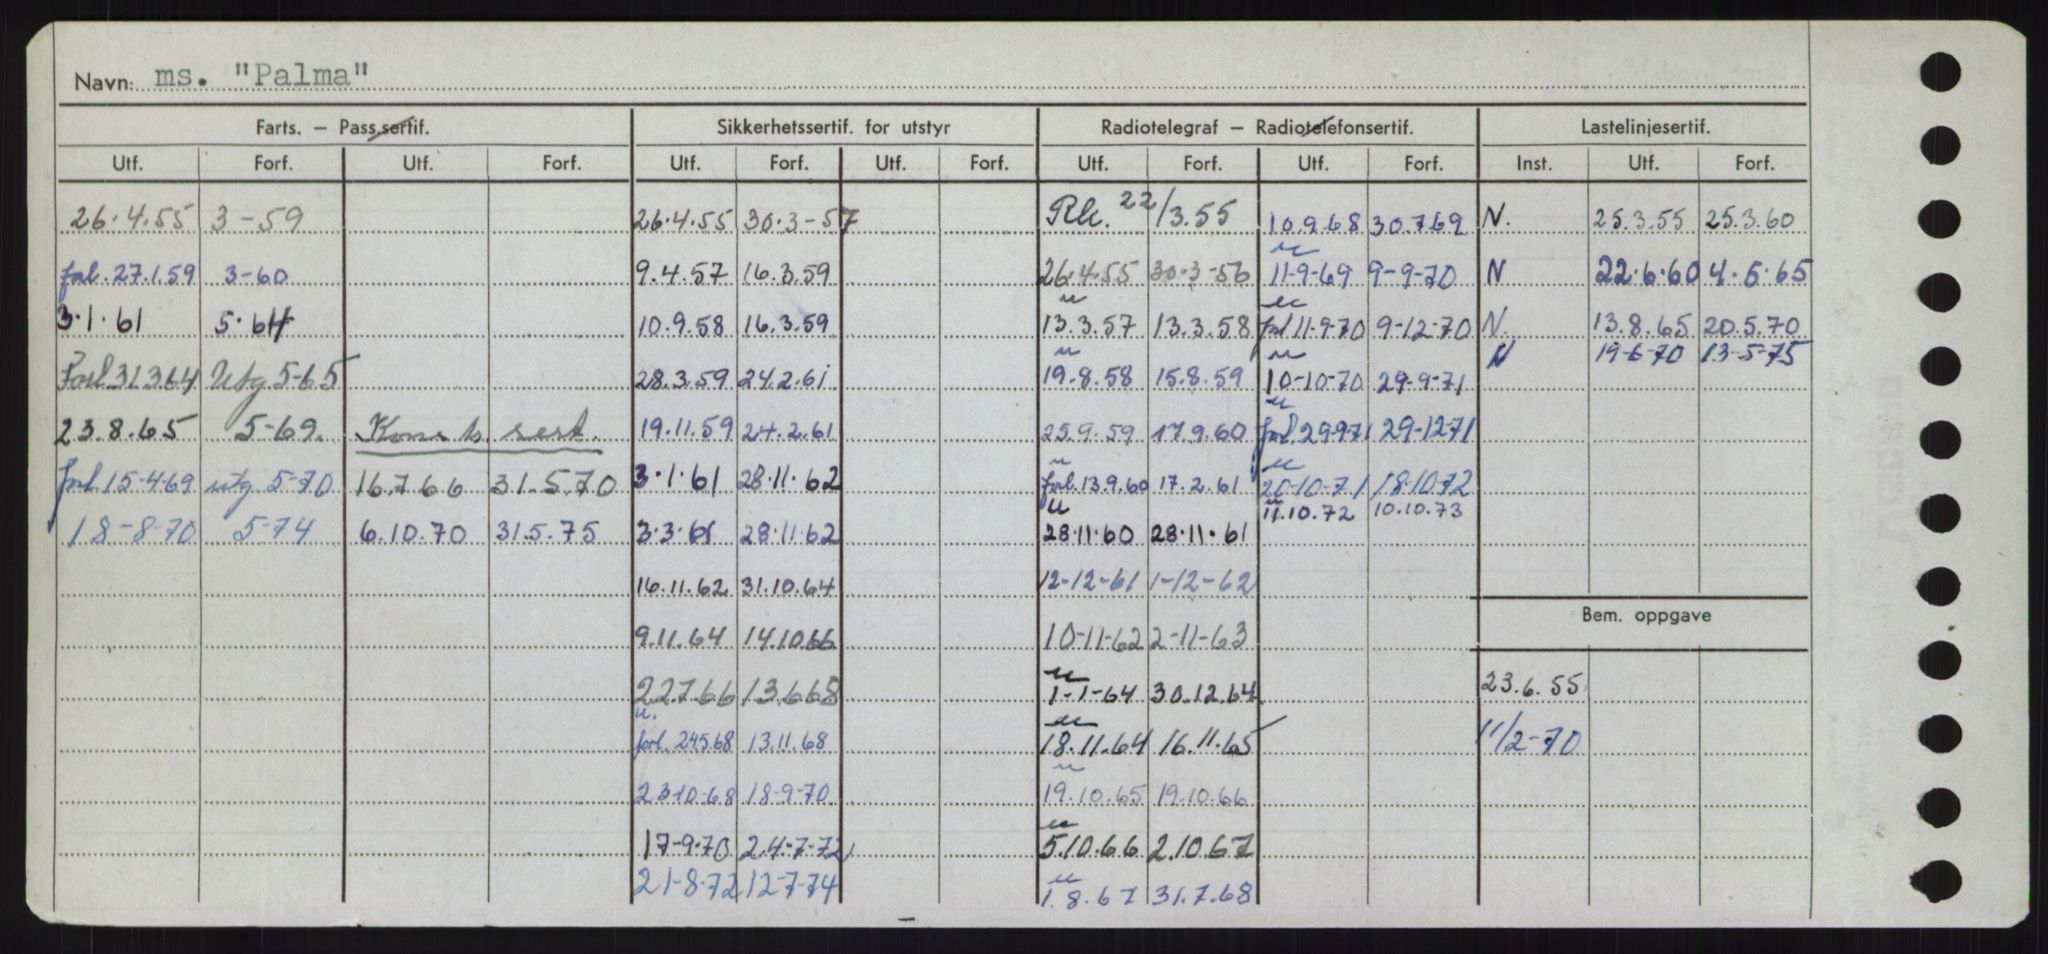 Navn: ms. "Palma"
Farts. – Pass.sertif. Sikkerhetssertif. for utstyr Radiotelegraf – Radiotelefonsertif. Lastelinjesertif.
Utf. Forf. Utf. Forf. Utf. Forf. Utf. Forf. Utf. Forf. Utf. Forf. Inst. Utf. Forf.
26.4.55 3-59 26.4.55 30.3-57 Rk. 22/3.55 10.9.68 30.7.69 N. 25.3.55 25.3.60
forl. 27.1.59 3-60 9.4.57 16.3.59 26.4.55 30.3-56 u 11-9-69 9-9-70 N 22.6.60 4.5.65
3.1.61 5.64 10.9.58 16.3.59 u 13.3.57 13.3.58 u forl 11-9-70 9-12-70 N. 13.8.65 20.5.70
N 19-6-70 13-5-75
Forl 31.3.64 Utg 5-65 28.3.59 24.2.61 u 19.8.58 15.8.59 u 10-10-70 29-9-71
23.8.65 5-69. Konst. sert. 19.11.59 24.2.61 25.9.59 17.9.60 u forl. 29-9-71 29-12-71
forl. 15-4-69 utg. 5-70 16.7.66 31.5.70 3.1.61 28.11.62 u forl. 13.9.60 17.2.61 u 20-10-71 18.10.72
18-8-70 5-74 6.10.70 31.5.75 3.3.61 28.11.62 u 28.11.60 28.11.61 u 11.10.72 10.10.73
16.11.62 31.10.64 12-12-61 1-12-62
Bem. oppgave
9.11.64 14.10.66 10-11-62 2-11-63
22.7.66 13.6.68 u 1-1-64 30.12.64 23.6.55
u. forl. 24.5.68 13.11.68 u 18.11.64 16.11.65 11/2-70
23-10-68 18-9-70 u 19.10.65 19.10.66
17-9-70 24-7-72 u 5.10.66 2.10.67
21-8-72 12-7-74 u 1.8.67 31.7.68